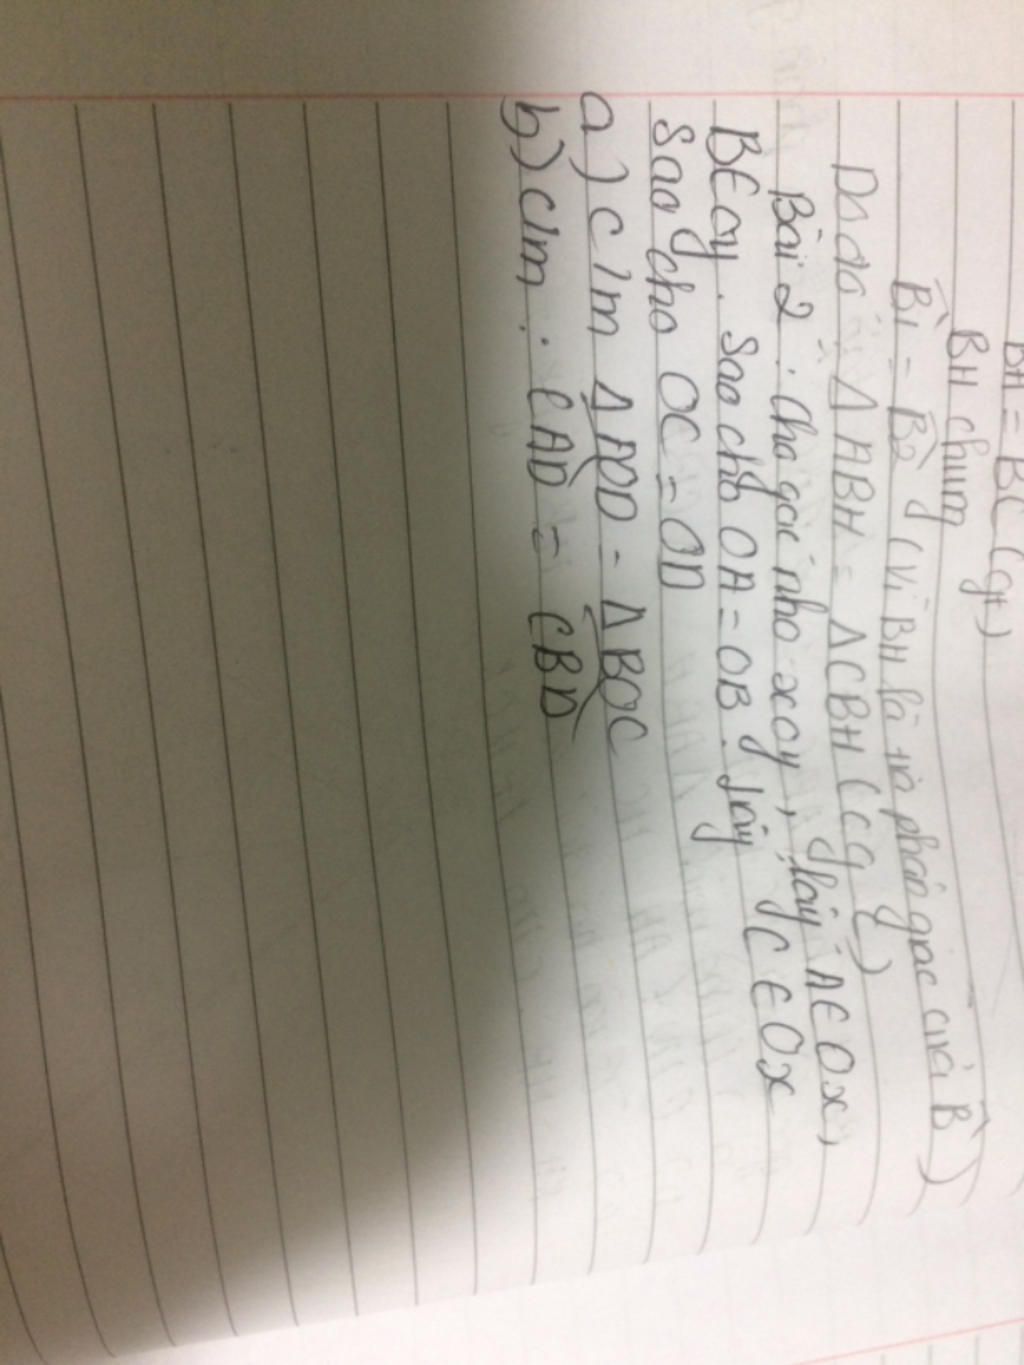 BA = BC (gt)
BH chung
B̂1 = B̂2 (vì BH là tia phân giác của B̂)
Do đó Δ ABH = Δ CBH (cgc)
Bài 2: cho góc nhọ xOy, lấy A ∈ Ox,
B ∈ Oy. Sao cho OA = OB. Lấy C ∈ Ox
Sao cho OC = OD
a) c/m Δ AOD = Δ BOC
b) c/m: CAD = CBD